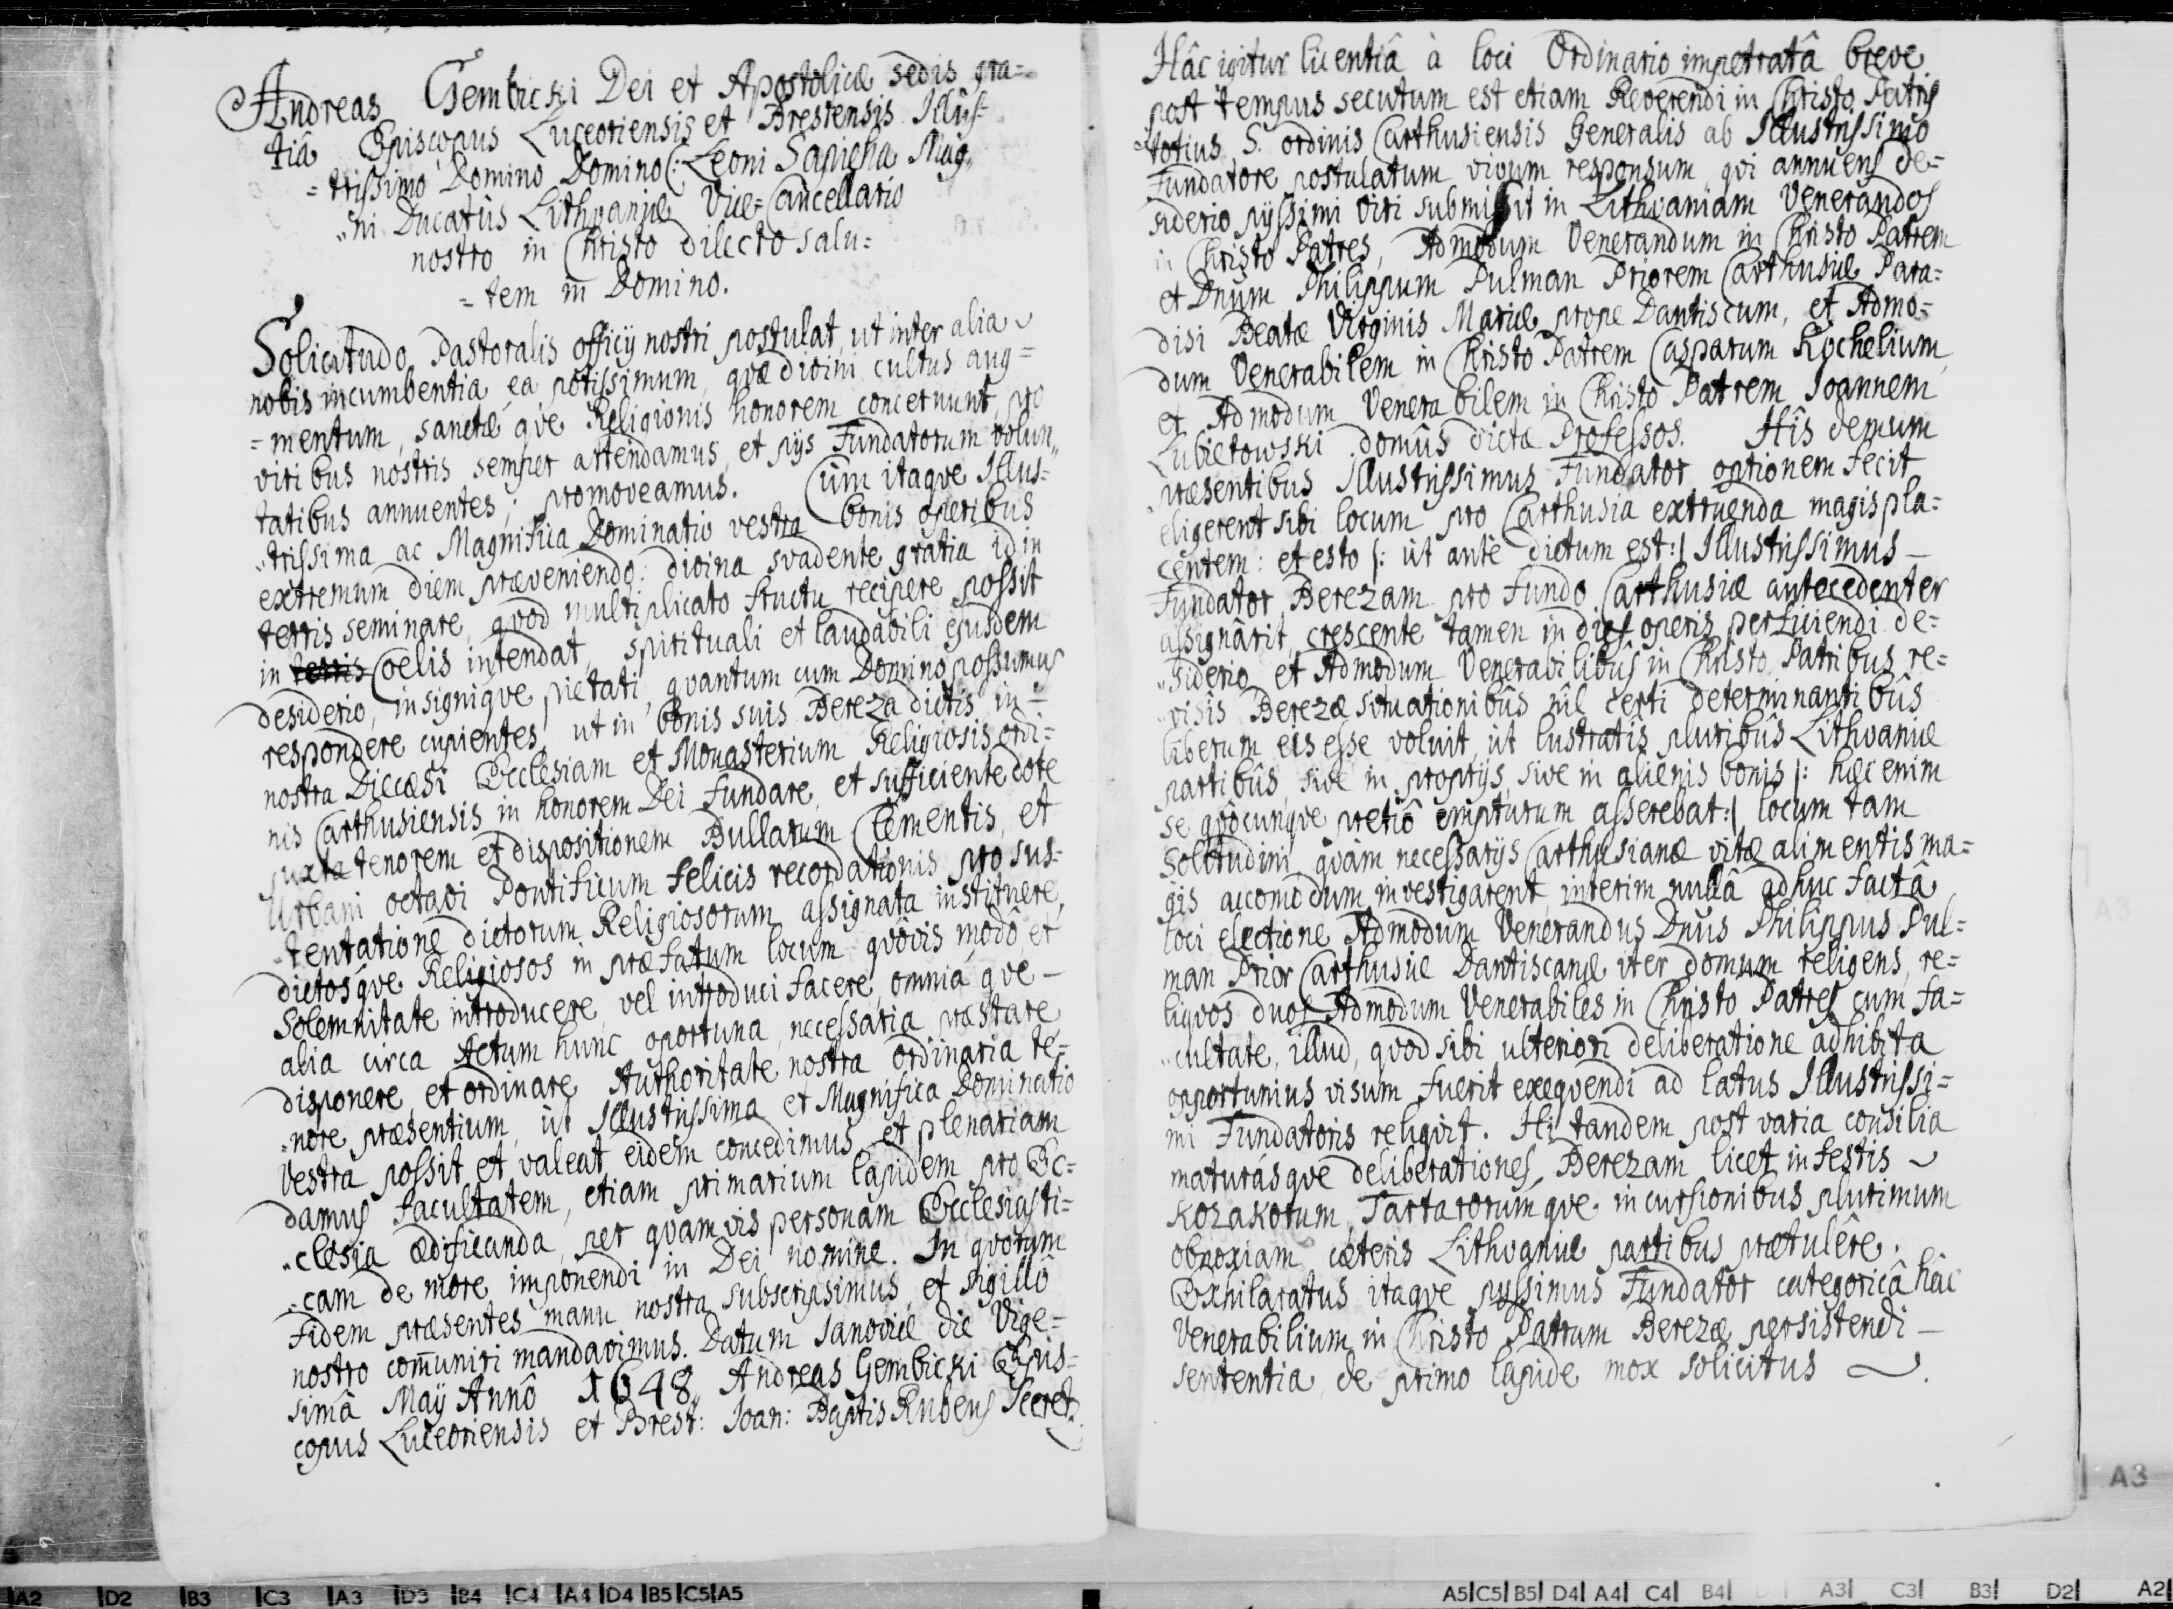 Andreas Gembicki Dei et Apostolicæ Sedis gra=
tiâ Episcopus Luceoriensis et Brestensis Illus=
=trissimo Domino Domino (: Leoni Sapieha Mag,,
,,ni Ducatûs Lithvaniæ Vice=Cancellario
nostro in Christo dilecto salu=
=tem in Domino.
Solicitudo Pastoralis officij nostri postulat, ut inter alia
nobis incumbentia, ea potissimum, quæ divini cultus aug=
=mentum, sanctæ qve Religionis honorem concernunt, pro
viribus nostris semper attendamus, et pijs Fundatorum volun,,
tatibus annuentes, promoveamus. Cùm itaqve Illus=
,,trissima ac Magnifica Dominatio vestra bonis operibus
extremum diem præveniendo: divina svadente gratia id in
terris seminare, qvod multiplicato fructu recipere possit
in terris Coelis intendat, spirituali et laudabili ejusdem
desiderio, insigniqve pietati, qvantum cum Domino possumus
respondere cupientes, ut in bonis suis Bereza dictis, in
nostra Diæcesi Ecclesiam et Monasterium Religiosis ordi=
nis Carthusiensis in honorem Dei fundare, et sufficiente dote
juxta tenorem et dispositionem Bullarum Clementis, et
Urbani octavi Pontificum felicis recordationis pro sus=
=tentatione dictorum Religiosorum assignata instituere,
dictosqve Religiosos in præfatum locum qvôvis modô et
Solemnitate introducere, vel introduci facere, omnia qve —
alia circa Actum hunc oportuna, necessaria præstare
disponere, et ordinare, Authoritate nostra ordinaria te=
=nore præsentium, ut Illustrissima et Magnifica Dominatio
Vestra possit et valeat, eidem concedimus, et plenariam
damus facultatem, etiam primarium lapidem pro Ec=
,,clesia ædificanda, per qvamvis personam Ecclesiasti=
,,cam de more imponendi in Dei nomine. In qvorum
Fidem præsentes manu nostra subscripsimus, et sigillô
nostro com̃uniri mandavimus. Datum Janoviæ die Vige=
simâ Maij Annô 1648,, Andreas Gembicki Epis=
copus Luceoriensis et Brest: Joan: Baptis Rubens Secret:
Hâc igitur licentiâ à loci Ordinario impetratâ breve
post tempus secutum est etiam Reverendi in Christo Patris
totius S. ordinis Carthusiensis Generalis ab Illustrissimo
Fundatore postulatum vivum responsum, qvi annuens de=
siderio pijssimi viri submisit in Lithvaniam Venerandos
in Christo Patres, Admodum Venerandum in Christo Patrem
et Dnum Philippum Pulman Priorem Carthusiæ Para=
disi Beatæ Virginis Mariæ prope Dantiscum, et Admo=
dum Venerabilem in Christo Patrem Casparum Kochelium,
et Admodum Venerabilem in Christo Patrem Joannem
Lubietowski domûs dictæ Professos. Hîs demum
præsentibus Illustrissimus Fundator optionem fecit,
eligerent sibi locum pro Carthusia extruenda magis pla=
centem: et esto |: ut antè dictum est :| Illustrissimus —
Fundator Berezam pro fundo Carthusiæ antecedenter
assignârit, crescente tamen in dies operis perficiendi de=
,,siderio, et Admodum Venerabilibûs in Christo Patribus re=
,,visis Berezæ situationibûs nîl certi determinantibûs
liberum eis esse voluit, ut lustratis pluribûs Lithvaniæ
partibûs, sive in proprijs, sive in alienis bonis |: hæc enim
se qvôcunqve pretiô empturum asserebat :| locum tam
Solitudini, qvàm necessarijs Carthusianæ vitæ alimentis ma=
gis accomodum investigarent, interim nullâ adhuc factâ
loci electione Admodum Venerandus Dnus Philippus Pul=
man Prior Carthusiæ Dantiscanæ iter domum religens, re=
liqvos duos Admodum Venerabiles in Christo Patres cum fa=
,,cultate, illud, qvod sibi ulteriori deliberatione adhibita
opportunius visum fuerit exeqvendi ad latus Illustrissi=
mi Fundatoris reliqvit. Hi tandem post varia consilia
maturásqve deliberationes Berezam licet infestis
Kozakorum, Tartarorúmqve incursionibus plurimum
obnoxiam cæteris Lithvaniæ partibus prætulêre.
Exhilaratus itaqve pijssimus Fundator categoricâ hâc
Venerabilium in Christo Patrum Berezæ persistendi —
sententia, de primo lapide mox solicitus
A3
A2 D2 B3 C3 A3 D3 B4 C4 A4 D4 B5 C5 A5
A5 C5 B5 D4 A4 C4 B4 A3 C3 B3 D2 A2